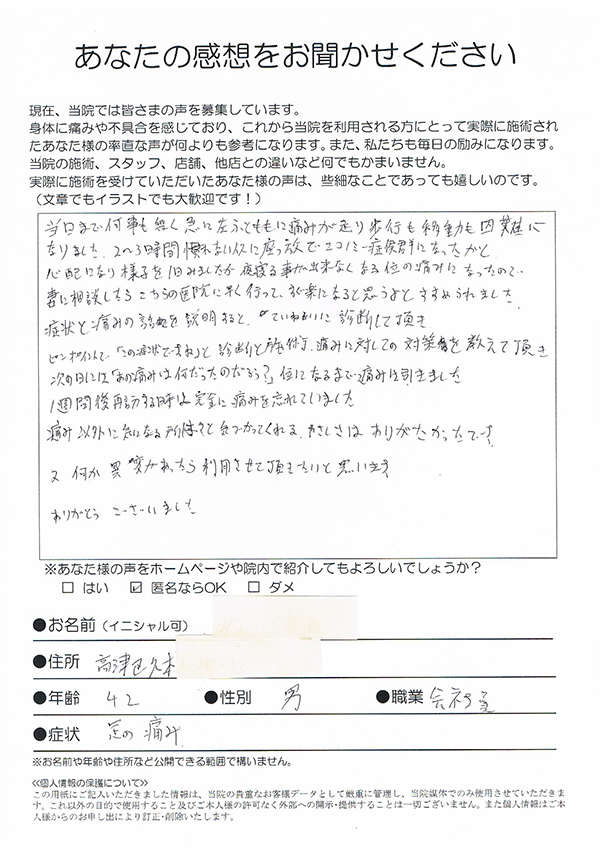 あなたの感想をお聞かせください
現在、当院では皆さまの声を募集しています。
身体に痛みや不具合を感じており、これから当院を利用される方にとって実際に施術され
たあなた様の率直な声が何よりも参考になります。また、私たちも毎日の励みになります。
当院の施術、スタッフ、店舗、他店との違いなど何でもかまいません。
実際に施術を受けていただいたあなた様の声は、些細なことであっても嬉しいのです。
（文章でもイラストでも大歓迎です！）
当日まで何事も無く急に左ふとももに痛みが走り歩行も移動も困難に
なりました。2〜3時間慣れない仕事に座り放でエコノミー症候群になったかと
心配になり様子を1日みましたが夜寝る事が出来なくなる位の痛みになったので
妻に相談したらこちらの医院に早く行って、が楽になると思うよとすすめられました
症状と痛みの説明すると、ていねいに診断して頂き
ピンポイントで、「この症状ですね」と診断と施術、痛みに対しての対策も教えて頂き
次の日には「あの痛みは何だったのだろう？」位になるまで痛みは引きました
1週間後再訪する時は完全に痛みを忘れていました
痛み以外に気になる所はと気づかってくれる、やさしさはありがたかったです
又何か異変があったら利用させて頂きたいと思います
ありがとうございました
※あなた様の声をホームページや院内で紹介してもよろしいでしょうか？
□ はい ☑ 匿名ならOK □ ダメ
●お名前（イニシャル可）
●住所 高津区久本
●年齢 42 ●性別 男 ●職業 会社員
●症状 足の痛み
※お名前や年齢や住所など公開できる範囲で構いません。
≪個人情報の保護について≫
この用紙にご記入いただきました情報は、当院の貴重なお客様データとして厳重に管理し、当院媒体でのみ使用させていただきま
す。これ以外の目的で使用すること及びご本人様の許可なく外部への開示・提供することは一切ございません。また個人情報はご本
人様からのお申し出により訂正・削除いたします。